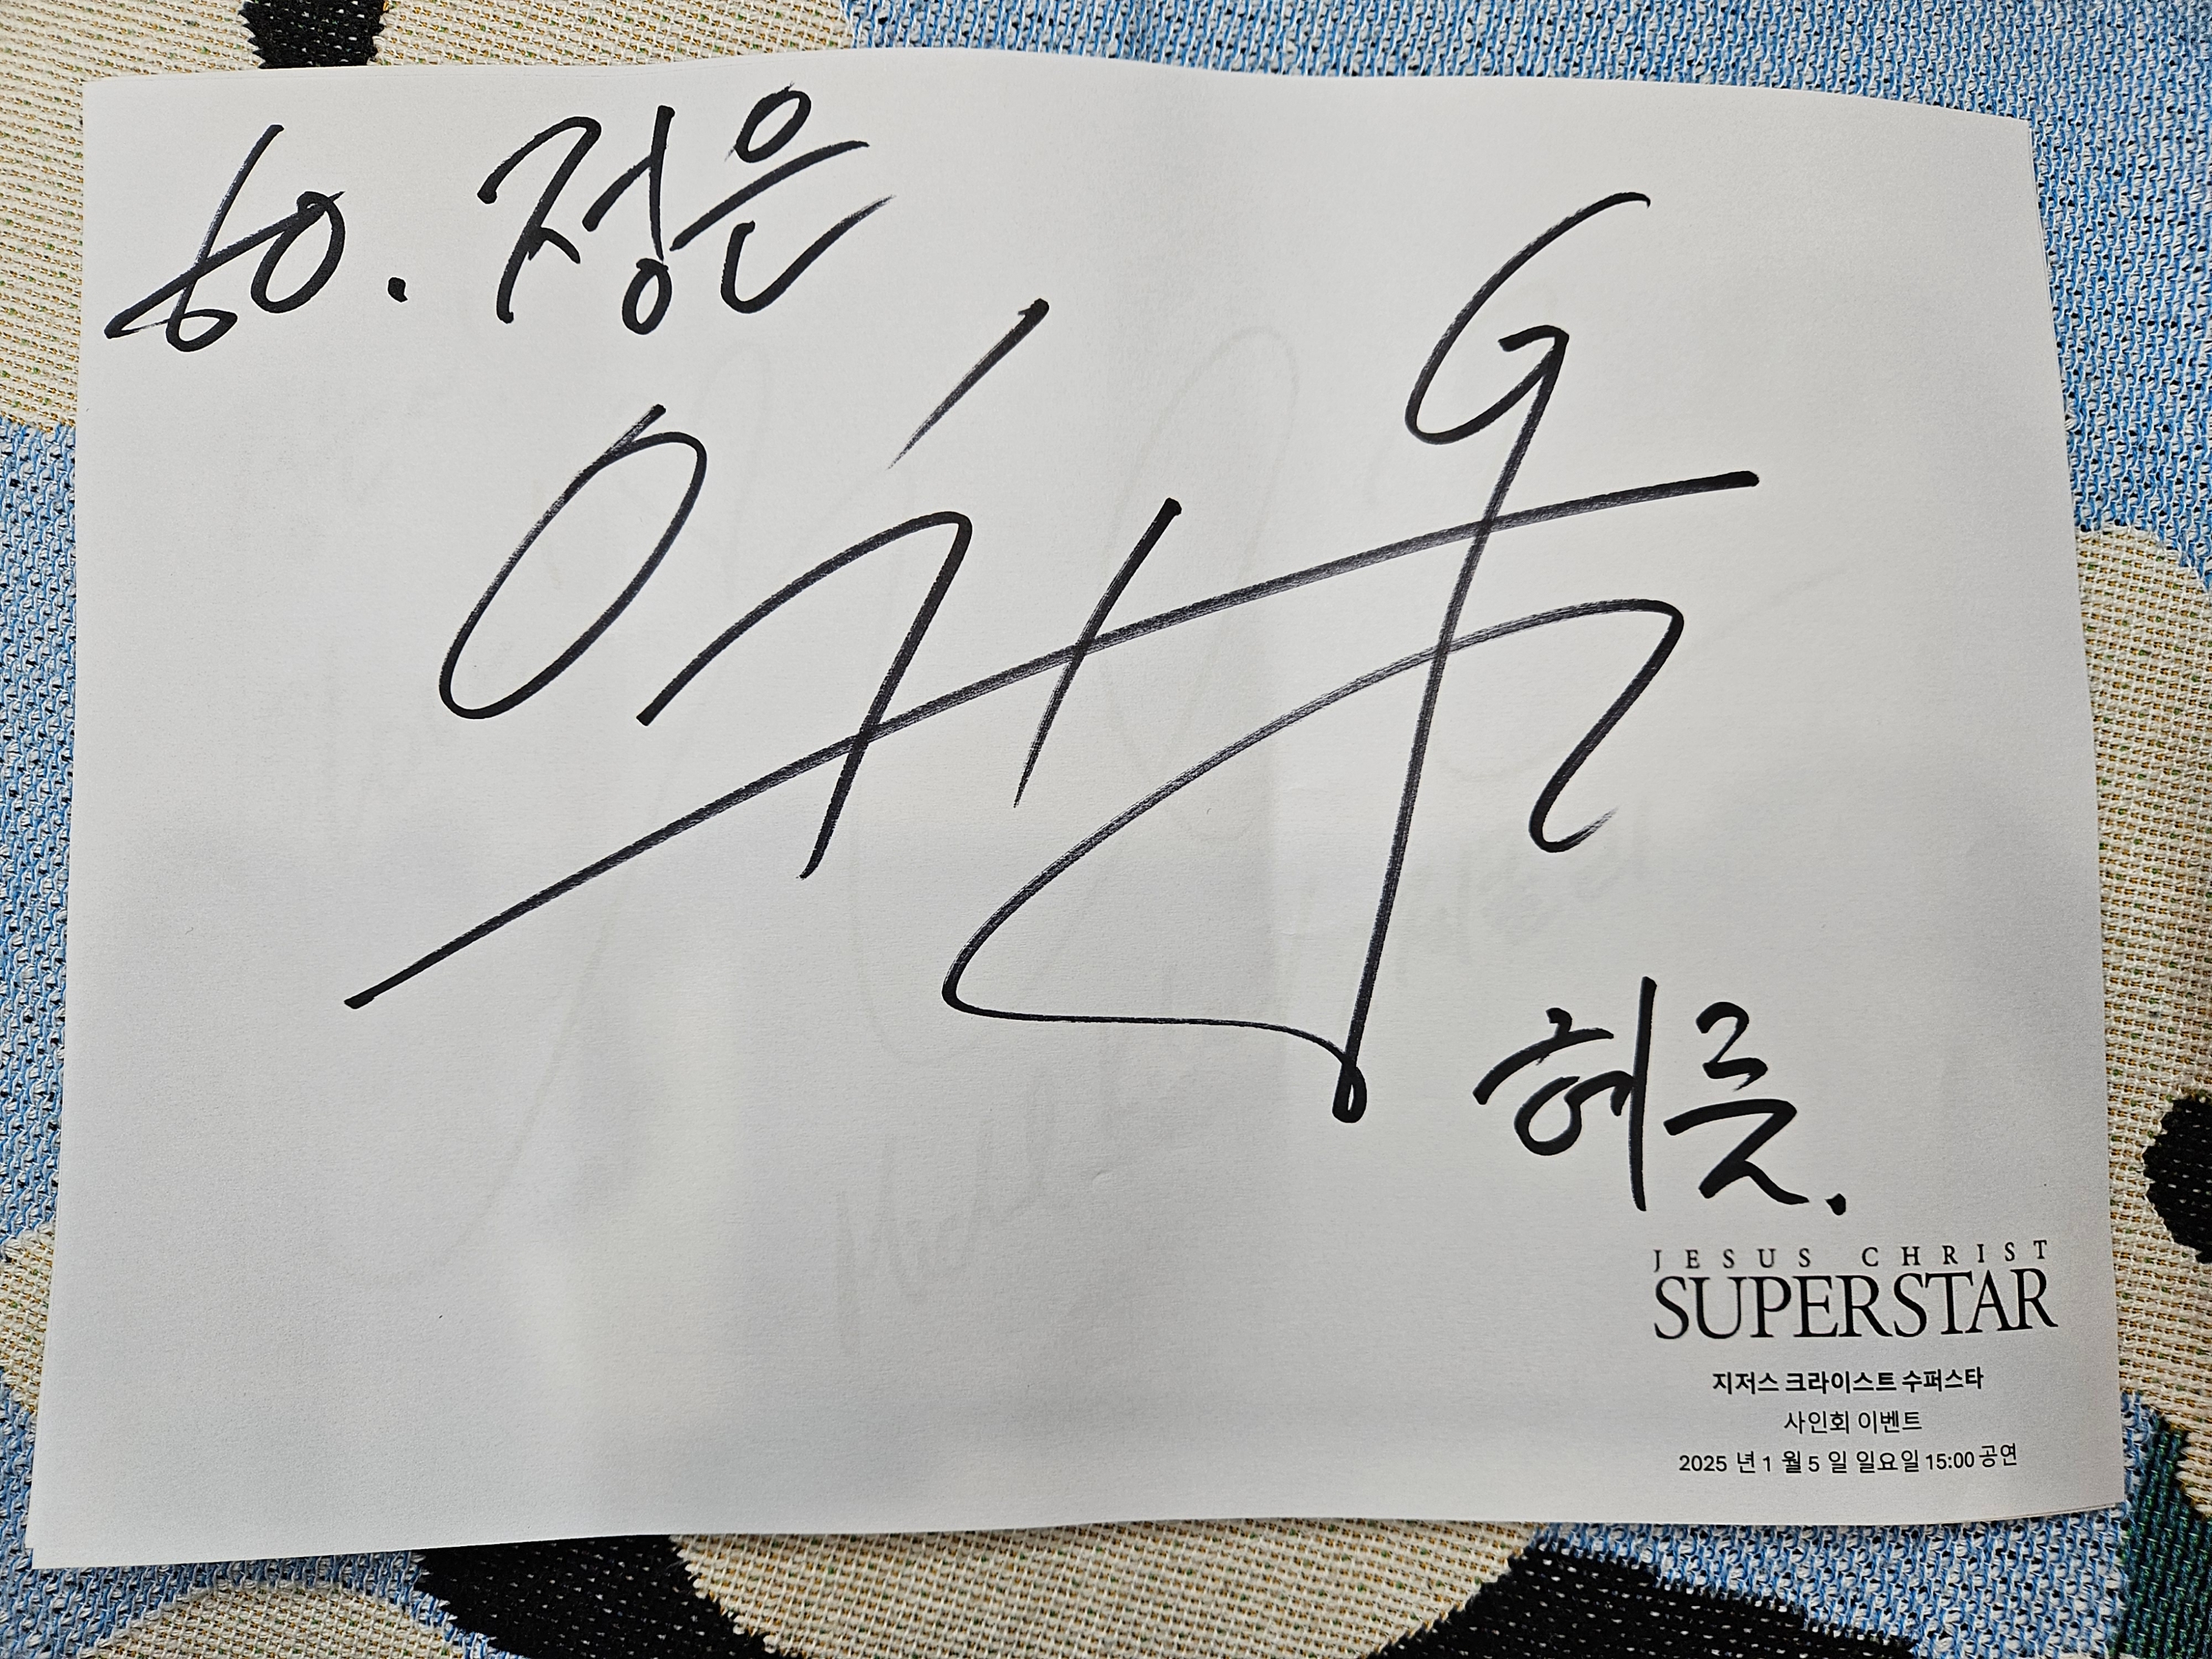 to. 정은
헤롯.
JESUS CHRIST
SUPERSTAR
지저스 크라이스트 수퍼스타
사인회 이벤트
2025 년 1 월 5 일 일요일 15:00 공연